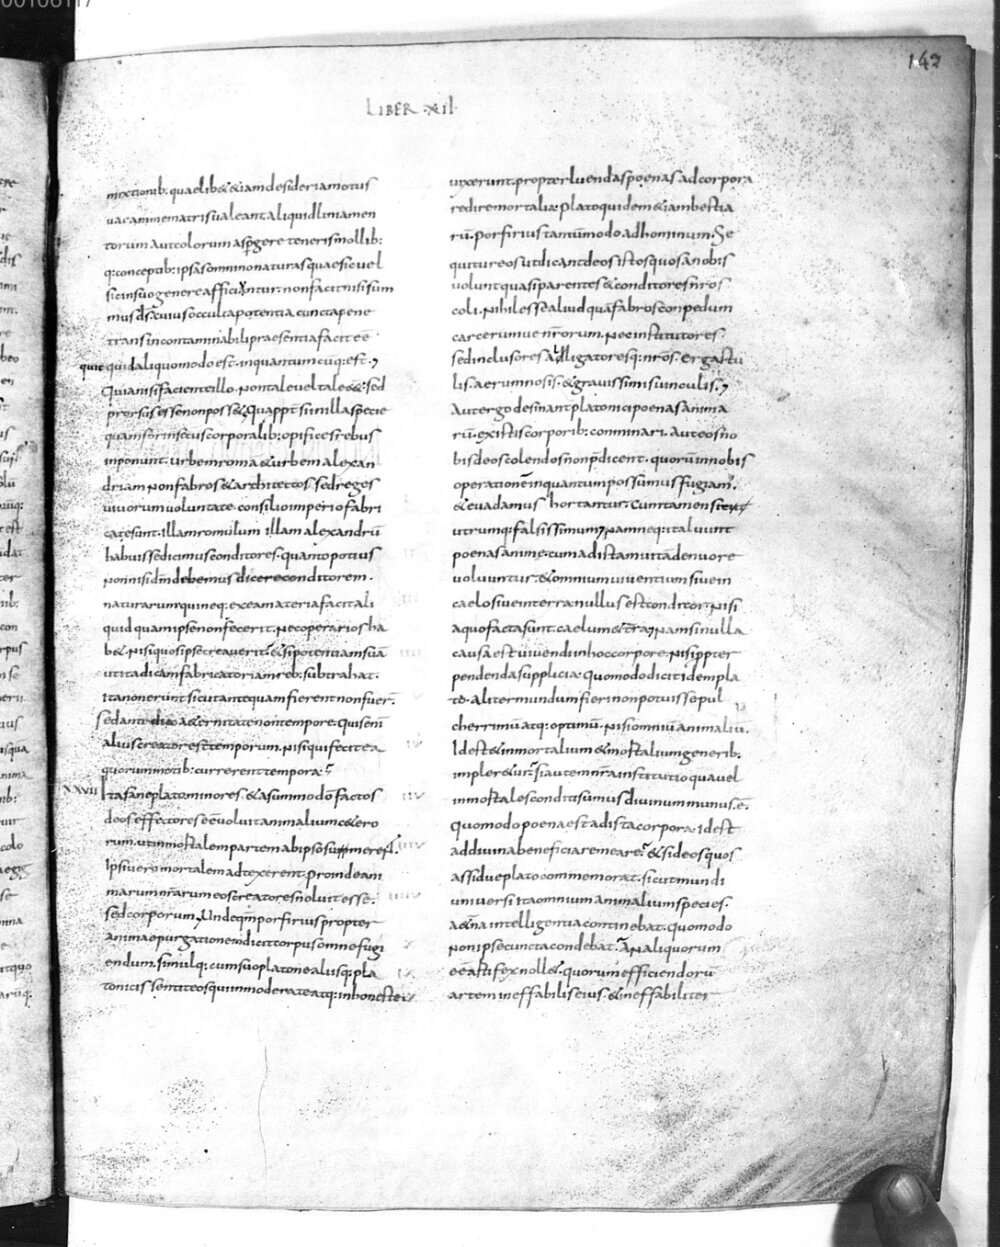 142
LIBER · XII
mixtionib: quaelib& &iam desideria motus
uae animae matris ualeant aliquid liniamen
torum aut colorum aspergere teneris mollib:
q: conceptib: ipsas omnino naturas quae sic uel
sic in suo genere afficiantur non facit nisi sum
mus ds cuius occulta potentia cuncta pene
trans incontaminabili praesentia facit eē
quicquid aliquo modo est inquantumcūq: est.
Quia nisi faciente illo non tale uel tale ēe sed
prorsus esse non poss& Quappt si in illa specie
quam forinsecus corporalib: opifices rebus
inponunt urbem roma & urbem alexan
driam non fabros & architectos sed reges
uiuorum uoluntate consilio imperio fabri
catae sunt illam romulum illam alexandrū
habuisse dicimus conditores quanto potius
non nisi dm debemus dicere conditorem
naturarum qui neq: ex ea materia facit ali
quid quam ipse non fecerit nec operarios ha
b& nisi quos ipse creauerit & si potentiam suā
ut ita dicam fabricatoriam reb: subtrahat
ita non erunt sicut antequam fierent non fuer
sed ante dico aeternitate non tempore Quis eni
alius creator est temporum nisi qui fecit ea
quorum motib: currerent tempora
XXVII Ita sane plato minores & a summo dō factos
deos effectores eē uoluit animalium c&ero
rum ut inmortalem partem ab ipso sumerent
Ipsi uero mortalem adtexerent proinde ani
marum nrarum eos creatores noluit esse
sed corporum Unde qm porfirius propter
animae purgationem dicit corpus omne fugi
endum simulq: cum suo platone aliisq: pla
tonicis sentit eos qui inmoderate atq: inhoneste
uixerunt propter luendas poenas ad corpora
redire mortalia plato quidem &iam bestia
rū porfirius tantummodo ad hominum Se
quitur eos ut dicant deos istos quos a nobis
uolunt quasi parentes & conditores nros
coli nihil esse aliud quā fabros conpedum
carcerumue nrorum nec institutores
sed inclusores adligatoresq: nros ergastu
lis aerumnosis & grauissimis uinculis
Aut ergo desinant platonici poenas anima
rū ex istis corporib: conminari aut eos no
bis deos colendos non pdicent quorū in nobis
operationē inquantum possumus fugiam
& euadamus hortantur Cum tamen sit
utrumq: falsissimum nam neq: ita luunt
poenas anime cum ad istam uitā denuo re
uoluuntur & omnium uiuentium siue in
caelo siue in terra nullus est conditor nisi
a quo facta sunt caelum & tra Nam si nulla
causa est uiuendi in hoc corpore nisi ppter
pendenda supplicia Quomodo dicit idem pla
to aliter mundum fieri non potuisse pul
cherrimū atq: optimū nisi omniū animaliū
Idest & inmortalium & mortalium generib:
impler&ur Si autem nra institutio qua uel
inmortales conditi sumus diuinum munus ē
Quomodo poena est ad ista corpora idest
ad diuina beneficia remeare & si deos quos
assidue plato commemorat sicut mundi
uniuersi ita omnium animalium species
a&na intelligentia continebat quomodo
non ipse cuncta condebat An aliquorum
eē artifex noll& quorum efficiendorū
artem ineffabilis eius & ineffabiliter